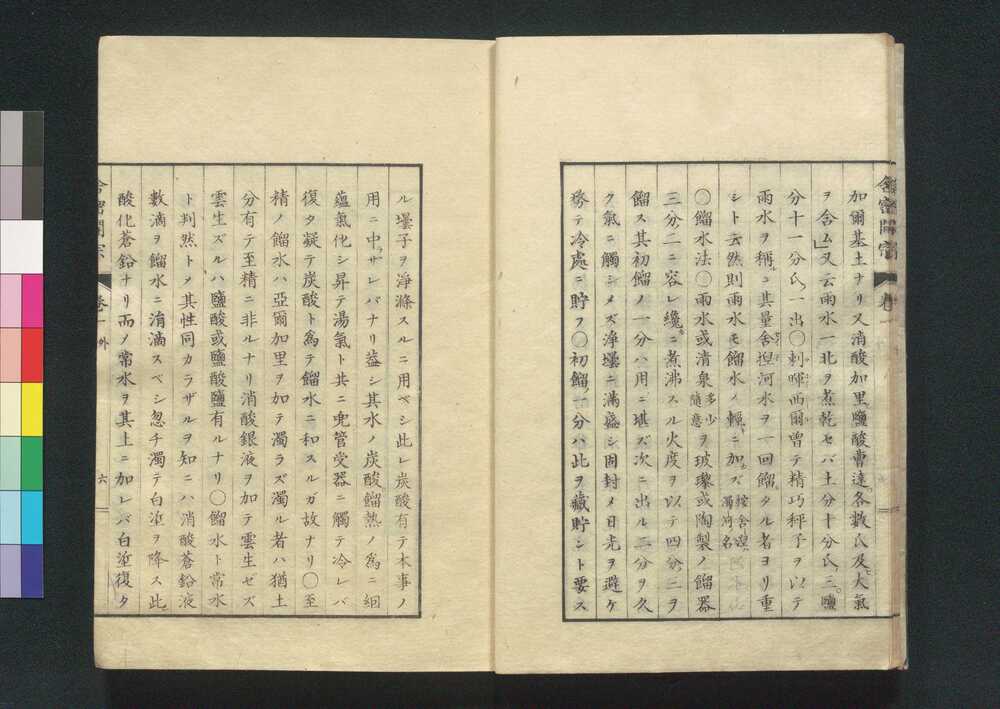 舎密開宗 巻一
加爾基土ナリ又消酸加里鹽酸曹達各數氏及大氣
ヲ含ム」又云雨水一北ヲ煮乾セバ土分十分氏三鹽
分十一分氏一出〇剌暉西爾曽テ精巧秤子ヲ以テ
雨水ヲ稱ルニ其量舎涅河水ヲ一回餾タル者ヨリ重
シト云然則雨水モ餾水ノ輕キニ加ズ 按舎涅濁河名
〇餾水法〇雨水或清泉 多少隨意 ヲ玻瓈或陶製ノ餾器
三分ノ二ニ容レ纔ニ煮沸スル火度ヲ以テ四分ノ三ヲ
餾ス其初餾ノ一分ハ用ニ堪ズ次ニ出ル三分ヲ久
ク氣ニ觸シメズ浄壜ニ滿盛シ固封メ日光ヲ避ケ
務テ冷處ニ貯フ〇初餾ノ一分ハ此ヲ藏貯シト要ス
ル壜子ヲ淨滌スルニ用ベシ此レ炭酸有テ本事ノ
用ニ中サレバナリ蓋シ其水ノ炭酸餾熱ノ為ニ細
蘊氣化シ昇テ湯氣ト共ニ兜管受器ニ觸テ冷レバ
復タ凝テ炭酸ト為テ餾水ニ和スルガ故ナリ〇至
精ノ餾水ハ亞爾加里ヲ加テ濁ラズ濁ル者ハ猶土
分有テ至精ニ非ルナリ消酸銀液ヲ加テ雲生ゼズ
雲生ズルハ鹽酸或鹽酸鹽有ルナリ〇餾水ト常水
ト判然トメ其性同カラザルヲ知ニハ消酸蒼鉛液
數滴ヲ餾水ニ滴スベシ忽チ濁テ白埿ヲ降ス此
酸化蒼鉛ナリ而ノ常水ヲ其上ニ加レバ白埿復タ
舎密開宗 巻一 外 六